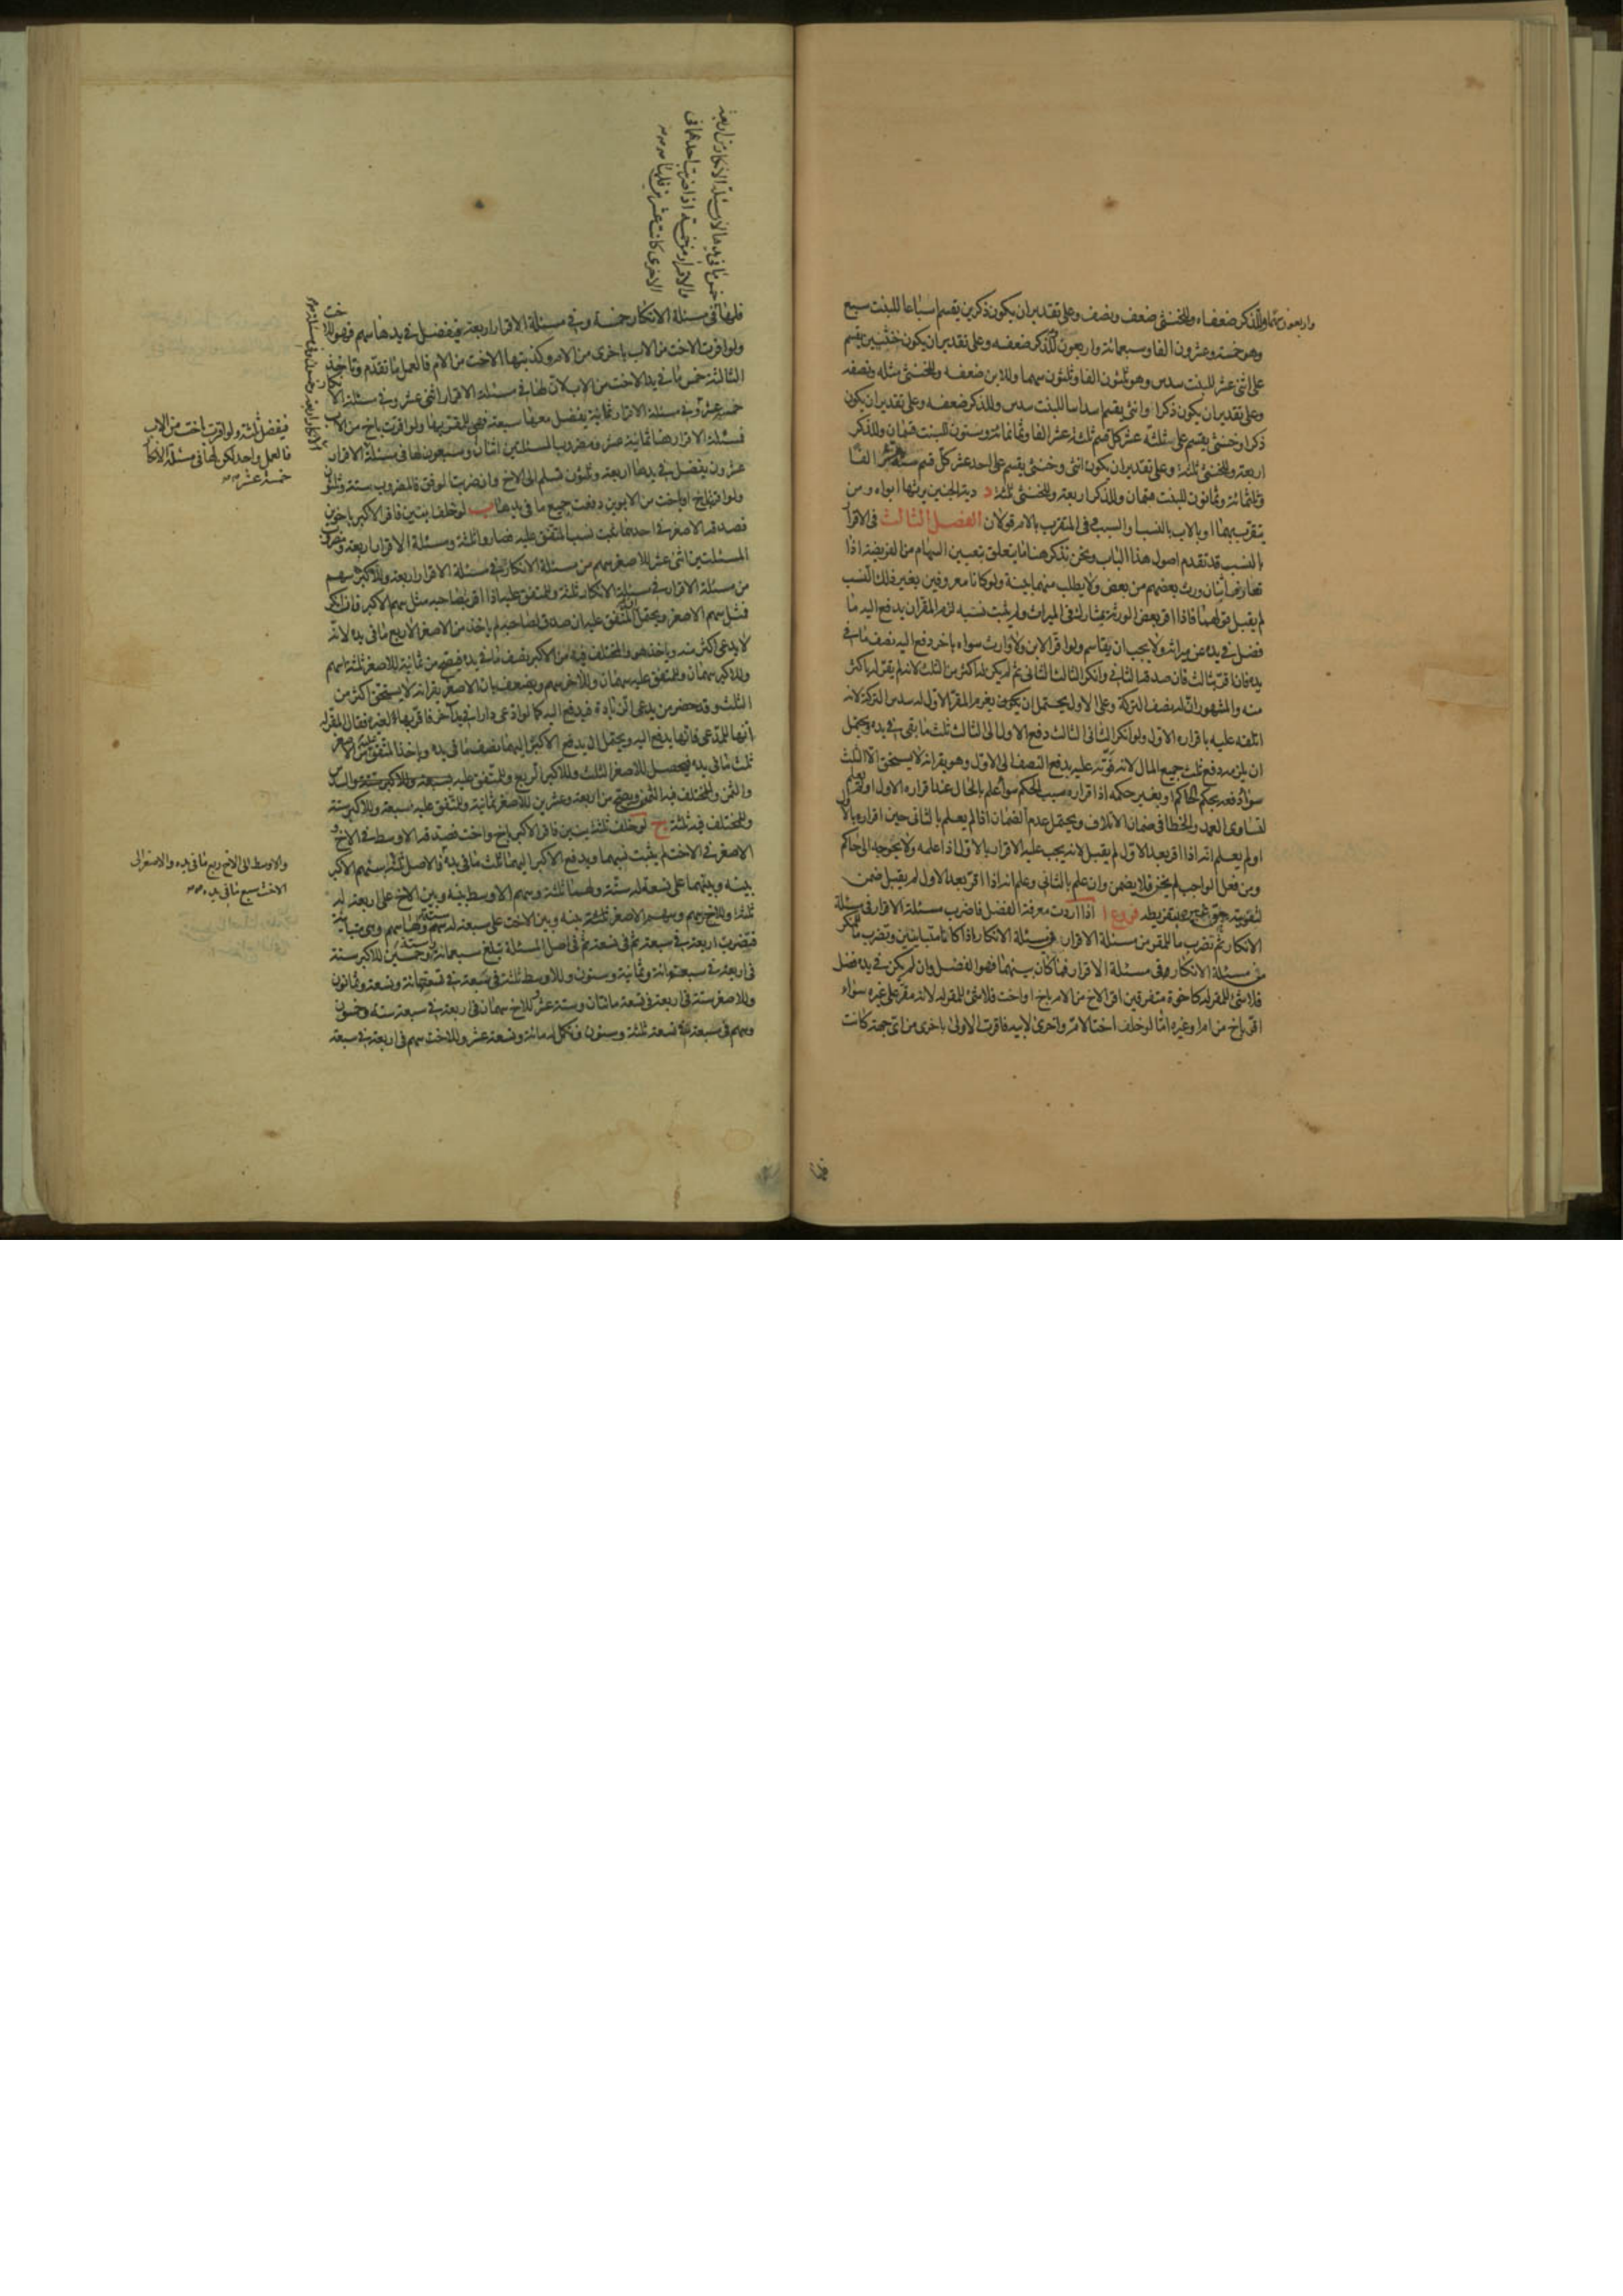 واربعون سهما وللذكر ضعفاه وللخنثى ضعف ونصف وعلى تقدير ان يكون ذكرين يقسم اسباعا للبنت سبع
وهو خمسة وعشرون الفا وسبعمائة واربعون وللذكر ضعفه وعلى تقدير ان يكون خنثيين يقسم
على اثنى عشر للبنت سدس وهو ثلثون الفا وثلثون سهما وللابن ضعفه وللخنثى مثله ونصفه
وعلى تقدير ان يكون ذكرا وانثى يقسم اسداسا للبنت سدس وللذكر ضعفه وعلى تقدير ان يكون
ذكرا وخنثى يقسم على ثلثة عشر كل قسم ثلثة عشر الفا وثمانمائة وستون للبنت قسمان وللذكر
اربعة وللخنثى ثلثة وعلى تقدير ان يكون انثى وخنثى يقسم على احد عشر كل قسم ستة عشر الفا
وثلثمائة وثمانون للبنت قسمان وللذكر اربعة وللخنثى ثلثة د دية الجنين يرثها ابواه ومن
يتقرب بهما او بالاب بالنسب او السبب وفى المتقرب بالام قولان الفصل الثالث فى الاقرار
بالنسب قد تقدم اصول هذا الباب ونحن نذكر هنا ما يتعلق بتعيين السهام من الفريضة اذا
تعارف اثنان ورث بعضهم من بعض ولا يطلب منهما بينة ولو كانا معروفين بغير ذلك النسب
لم يقبل قولهما فاذا اقر بعض الورثة بمشارك فى الميراث ولم يثبت نسبه لزم المقر ان يدفع اليه ما
فضل فى يده عن ميراثه ولا يجب ان يقاسم ولو اقر الابن ولا وارث سواه باخر دفع اليه نصف ما فى
يده فان اقر بثالث فان صدقه الثانى وانكر الثالث الثانى ثم لم يكن له اكثر من الثلث لانه لم يقر له باكثر
منه والمشهور ان له نصف التركة وعلى الاول يحتمل ان يكون يغرم المقر الاول له سدس التركة لانه
اتلفه عليه باقراره الاول ولو انكر الثانى الثالث دفع الاول الى الثالث ثلث ما بقى فى يده ويحتمل
ان يلزمه دفع ثلث جميع المال لانه فوته عليه بدفع النصف الى الاول وهو يقر انه لا يستحق الا الثلث
سواء دفعه بحكم الحاكم او بغير حكمه اذ اقراره سبب الحكم سواء علم بالحال عند اقراره الاول او لم يعلم
لتساوى العمد والخطا فى ضمان الاتلاف ويحتمل عدم الضمان اذا لم يعلم بالثانى حين اقراره بالاول
او لم يعلم انه اذا اقر بعد الاول لم يقبل لانه يجب عليه الاقرار بالاول اذا علمه ولا يحوجه الى حاكم
ومن فعل الواجب لم يخن فلا يضمن وان علم بالثانى وعلم انه اذا اقر بعد الاول لم يقبل ضمن
لتفويته حق غيره بتفريطه فروع ا اذا اردت معرفة الفضل فاضرب مسئلة الاقرار فى مسئلة
الانكار ثم تضرب ما للمقر من مسئلة الاقرار فى مسئلة الانكار اذا كانا متباينين وتضرب ما للمنكر
من مسئلة الانكار فى مسئلة الاقرار فما كان بينهما فهو الفضل وان لم يكن فى يده فضل
فلا شئ للمقر له كاخوة متفرقين اقر الاخ من الام باخ او اخت فلا شئ للمقر له لانه مقر على غيره سواء
اقر باخ من ام او غيره اما لو خلف اختا لام واخرى لابيه فاقرت الاولى باخرى من اى جهة كانت
فلها فى مسئلة الانكار خمسة وفى مسئلة الاقرار اربعة فيفضل فى يدها سهم فهو للاخت
ولو اقرت الاخت من الاب باخرى من الام وكذبتها الاخت من الام فالعمل ما تقدم وتاخذ
الثالثة خمس ما فى يد الاخت من الاب لان لها فى مسئلة الاقرار اثنى عشر وفى مسئلة الانكار
خمسة عشر وفى مسئلة الاقرار ثمانية يفضل معها سبعة فهى للمقر بها ولو اقرت باخ من الاب
فمسئلة الاقرار هنا ثمانية عشر ومضروب المسئلتين اثنان وسبعون لها فى مسئلة الاقرار
عشرون يفضل فى يدها اربعة وثلثون فتسلم الى الاخ وان ضربت الوفق فالمضروب ستة وثلثون
ولو اقر باخ او اخت من الابوين دفعت جميع ما فى يدها ب لو خلف ابنين فاقر الاكبر باخوين
فصدقه الاصغر فى احدهما ثبت نسب المتفق عليه فصاروا ثلثة ومسئلة الاقرار اربعة ومضروب
المسئلتين اثنى عشر للاصغر سهم من مسئلة الانكار فى مسئلة الاقرار اربعة وللاكبر سهم
من مسئلة الاقرار فى مسئلة الانكار ثلثة وللمتفق عليه اذا اقر بصاحبه مثل سهم الاكبر فان انكر
فمثل سهم الاصغر ويحتمل ان المتفق عليه ان صدق لصاحبه لم ياخذ من الاصغر الا ربع ما فى يده لانه
لا يدعى اكثر منه وياخذ هو والمختلف فيه من الاكبر نصف ما فى يده فيصح من ثمانية للاصغر ثلثة اسهم
وللاكبر سهمان وللمتفق عليه سهمان وللاخر سهم ويضعف بان الاصغر يقر انه لا يستحق اكثر من
الثلث وقد حضر من يدعى الزيادة فيدفع اليه كما لو ادعى دارا فى يد آخر فاقر بها لغيره فقال المقر له
انها للمدعى فانها يدفع اليه ويحتمل ان يدفع الاكبر اليهما نصف ما فى يده وياخذ المتفق عليه من الاصغر
ثلث ما فى يده فيحصل للاصغر الثلث وللاكبر الربع وللمتفق عليه والسدس
والثمن وللمختلف فيه الثمن ويصح من اربعة وعشرين للاصغر ثمانية وللمتفق عليه سبعة وللاكبر ستة
وللمختلف فيه ثلثة ج لو خلف ثلثة بنين فاقر الاكبر باخ واخت فصدقه الاوسط فى الاخ و
الاصغر فى الاخت لم يثبت نسبهما ويدفع الاكبر اليهما ثلث ما فى يده فالاصل ثلثة سهم الاكبر
بينه وبينهما على تسعة له ستة ولهما ثلثة وسهم الاوسط بينه وبين الاخ على اربعة له
ثلثة وللاخ سهم وسهم الاصغر بينه وبين الاخت على سبعة له ستة ولها سهم وهى متباينة
فتضرب اربعة فى سبعة ثم فى تسعة ثم فى اصل المسئلة تبلغ سبعمائة وستة وخمسين للاكبر ستة
فى اربعة فى سبعة مائة وثمانية وستون وللاوسط ثلثة فى سبعة فى تسعة مائة وتسعة وثمانون
وللاصغر ستة فى اربعة فى تسعة مائتان وستة عشر للاخ سهمان فى اربعة فى سبعة ستة وخمسون
وسهم فى سبعة فى تسعة ثلثة وستون فتكمل له مائة وتسعة عشر وللاخت سهم فى اربعة فى سبعة
خمس ما فى يدها لان مسئلة الانكار من اربعة
والاقرار من خمسة اذا ضربت احدهما فى
الاخرى كانت عشرين فلها
فيفضل ثلثة ولو اقرت اخت من الاب
فالعمل واحد لكن لها فى مسئلة الانكار
خمسة عشر
والاوسط الى الاخ ربع ما فى يده والاصغر الى
الاخت سبع ما فى يده